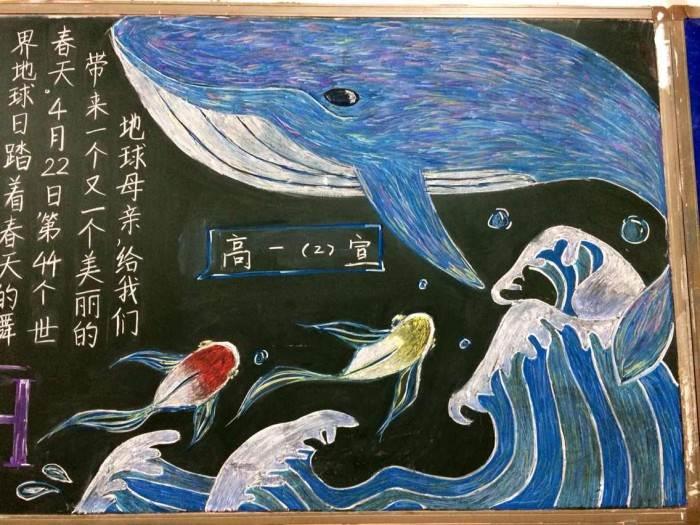 地球母亲,给我们
带来一个又一个美丽的
春天。4月22日,第44个世
界地球日踏着春天的舞
高一(2)宣